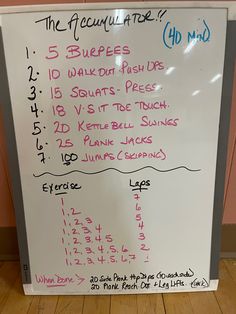 The Accumulator!!
(40 Min)
1. 5 Burpees
2. 10 Walkout Push Ups
3. 15 Squats - Press
4. 18 V-Sit Toe Touch.
5. 20 Kettlebell Swings
6. 25 Plank Jacks
7. 100 Jumps (Skipping)
Exercise Laps
1 7
1, 2 6
1, 2, 3 5
1, 2, 3, 4 4
1, 2, 3, 4, 5 3
1, 2, 3, 4, 5, 6 2
1, 2, 3, 4, 5, 6, 7
When Done: 20 Side Plank Hip Dips
20 Plank Reach Out + Leg Lifts.